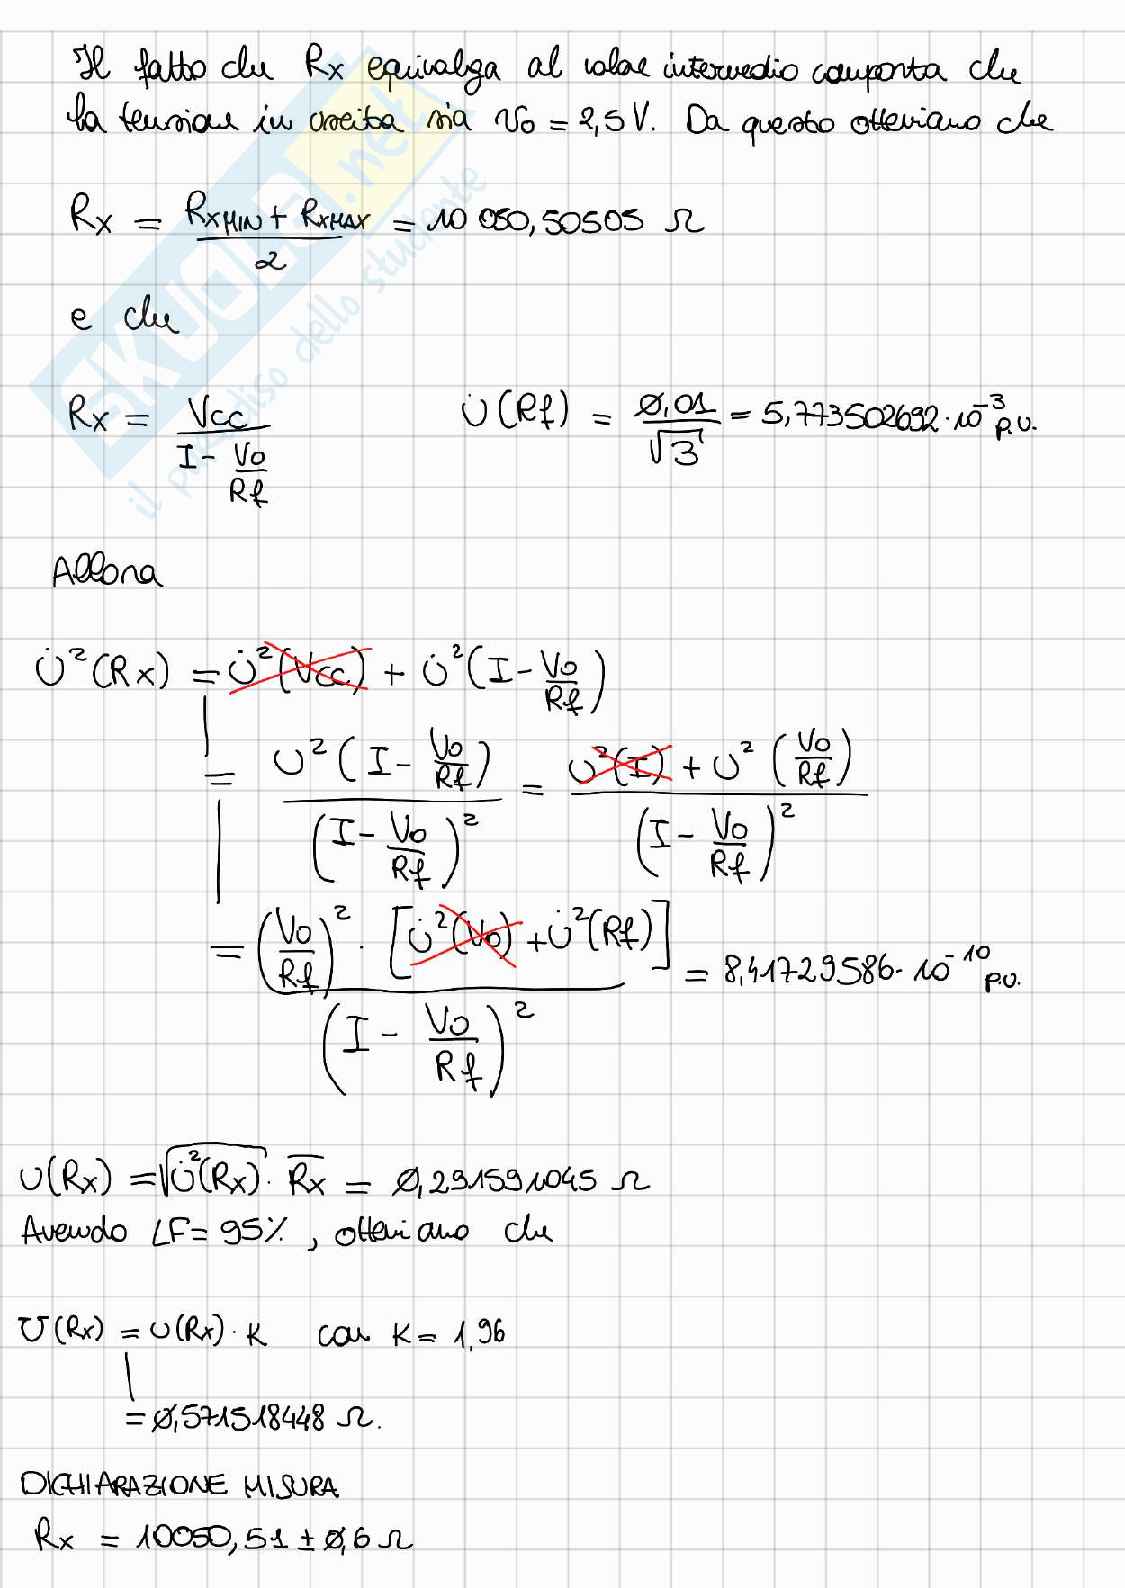 Il fatto che Rx equivalga al valore intermedio comporta che
la tensione in uscita sia Vo = 2,5 V. Da questo otteniamo che
Rx = (RxMIN + RxMAX)/2 = 10 050,50505 Ω
e che
Rx = Vcc/(I - Vo/Rf)
u̇(Rf) = 0,01/√3 = 5,773502692·10⁻³ p.u.
Allora
u̇²(Rx) = u̇²(Vcc) + u̇²(I - Vo/Rf)
= u²(I - Vo/Rf)/(I - Vo/Rf)² = (u²(I) + u²(Vo/Rf))/(I - Vo/Rf)²
= (Vo/Rf)² · [u̇²(Vo) + u̇²(Rf)]/(I - Vo/Rf)² = 8,41729586·10⁻¹⁰ p.u.
u(Rx) = √u̇²(Rx) · R̅x̅ = 0,291591045 Ω
Avendo LF = 95%, otteniamo che
U(Rx) = u(Rx)·K con K = 1,96
= 0,571518448 Ω.
DICHIARAZIONE MISURA
Rx = 10050,51 ± 0,6 Ω
SKUOLA.net
il paradiso dello studente